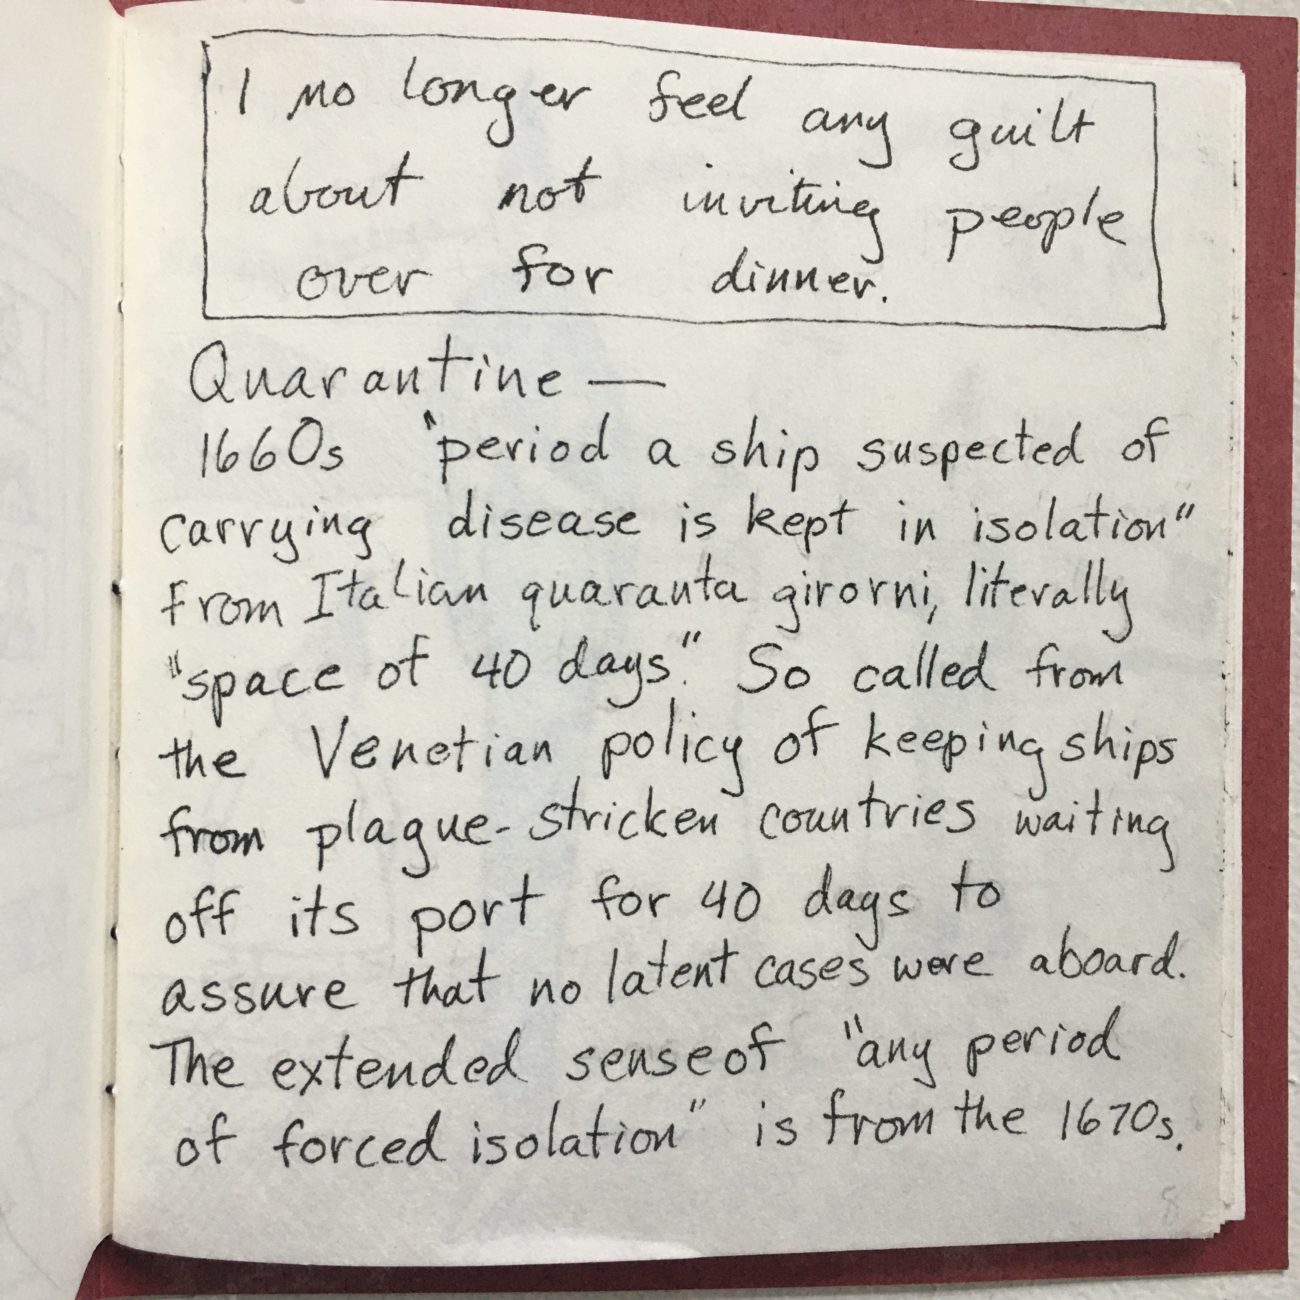 I no longer feel any guilt
about not inviting people
over for dinner.
Quarantine —
1660s "period a ship suspected of
carrying disease is kept in isolation"
from Italian quaranta girorni, literally
"space of 40 days." So called from
the Venetian policy of keeping ships
from plague-stricken countries waiting
off its port for 40 days to
assure that no latent cases were aboard.
The extended sense of "any period
of forced isolation" is from the 1670s.
8